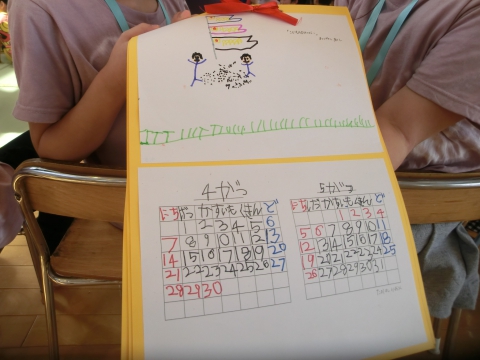 4がつ
にちげつかすいもくきんど
1 2 3 4 5 6
7 8 9 10 11 12 13
14 15 16 17 18 19 20
21 22 23 24 25 26 27
28 29 30
5がつ
にちげつかすいもくきんど
1 2 3 4
5 6 7 8 9 10 11
12 13 14 15 16 17 18
19 20 21 22 23 24 25
26 27 28 29 30 31